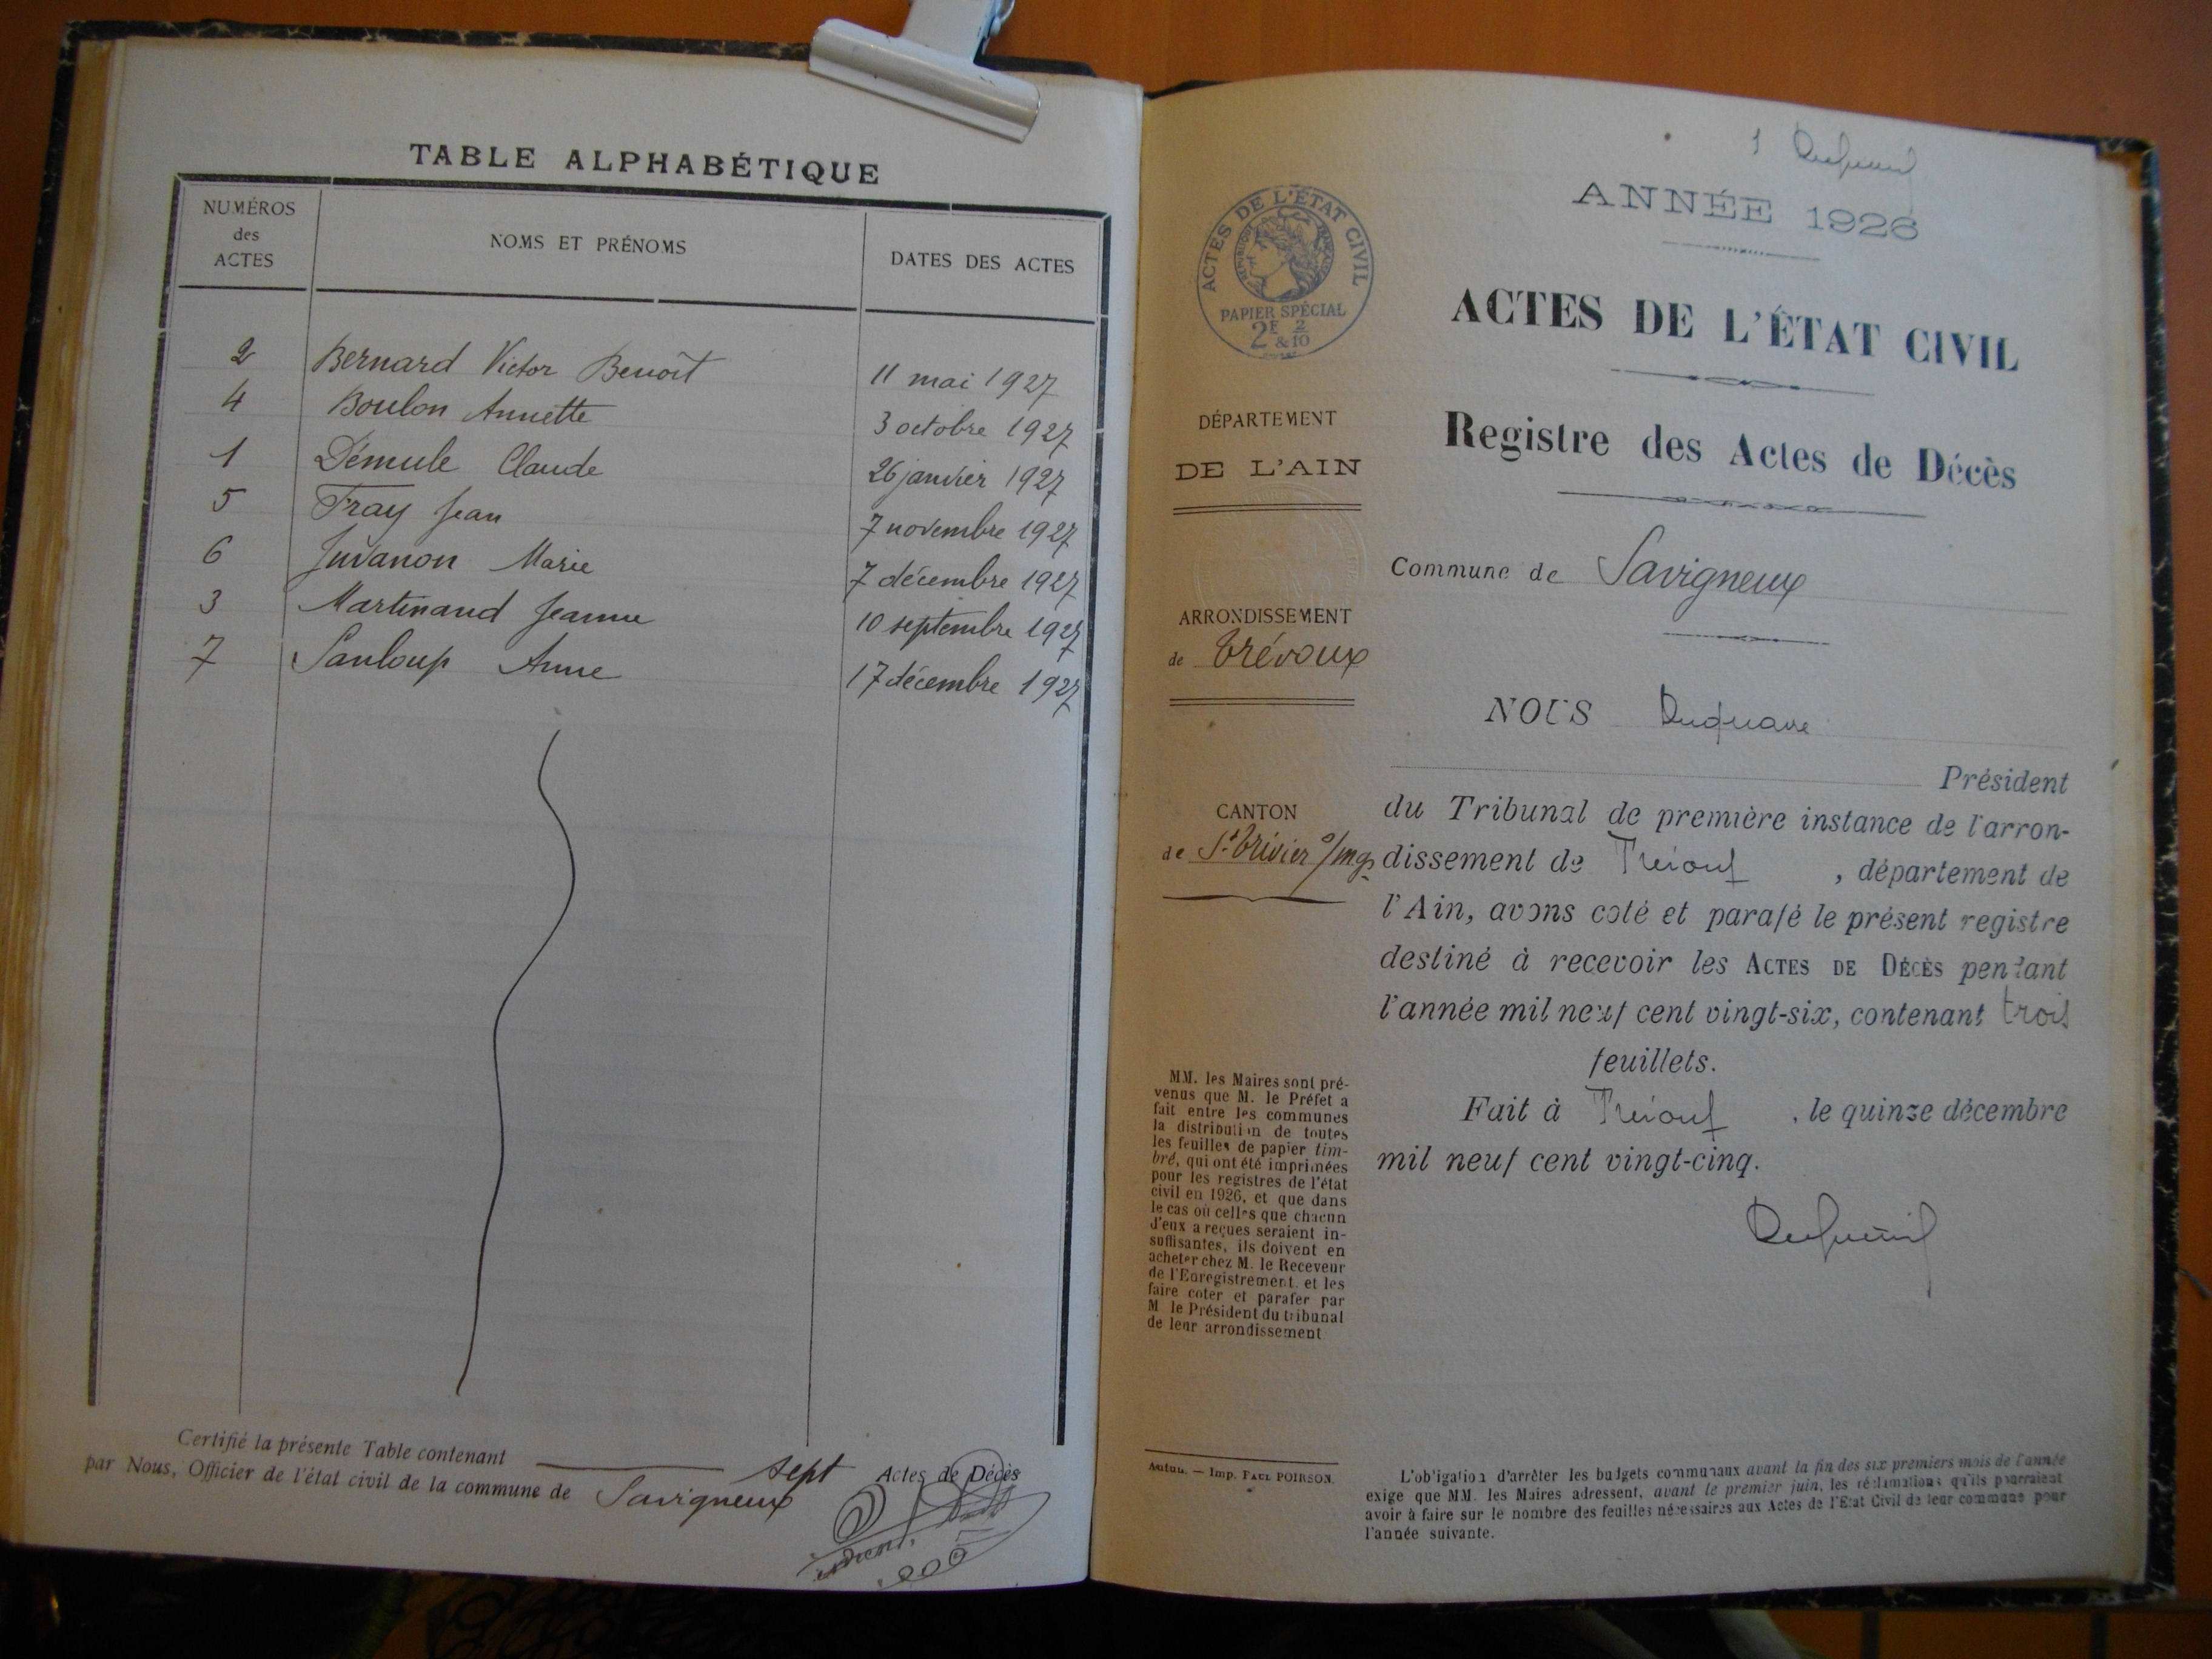 TABLE ALPHABÉTIQUE
NUMÉROS des ACTES
NOMS ET PRÉNOMS
DATES DES ACTES
2 Bernard Victor Benoît 11 mai 1927
4 Boulon Annette 3 octobre 1927
1 Démule Claude 26 janvier 1927
5 Fray Jean 7 novembre 1927
6 Juvanon Marie 7 décembre 1927
3 Martinand Jeanne 10 septembre 1927
7 Sauloup Anne 17 décembre 1927
Certifié la présente Table contenant sept Actes de Décès
par Nous, Officier de l'état civil de la commune de Savigneux
1
ANNÉE 1926
ACTES DE L'ÉTAT CIVIL
RÉPUBLIQUE FRANÇAISE
PAPIER SPÉCIAL
2F & 2/10
ACTES DE L'ÉTAT CIVIL
Registre des Actes de Décès
DÉPARTEMENT
DE L'AIN
Commune de Savigneux
ARRONDISSEMENT
de Trévoux
NOUS
Président
CANTON
de St Trivier s/mgs
du Tribunal de première instance de l'arron-
dissement de Trévoux, département de
l'Ain, avons coté et parafé le présent registre
destiné à recevoir les ACTES DE DÉCÈS pendant
l'année mil neuf cent vingt-six, contenant trois
feuillets.
Fait à Trévoux, le quinze décembre
mil neuf cent vingt-cinq.
MM. les Maires sont pré-
venus que M. le Préfet a
fait entre les communes
la distribution de toutes
les feuilles de papier tim-
bré, qui ont été imprimées
pour les registres de l'état
civil en 1926, et que dans
le cas où celles que chacun
d'eux a reçues seraient in-
suffisantes, ils doivent en
acheter chez M. le Receveur
de l'Enregistrement et les
faire coter et parafer par
M. le Président du tribunal
de leur arrondissement
Autun. — Imp. PAUL POIRSON.
L'obligation d'arrêter les budgets communaux avant la fin des six premiers mois de l'année
exige que MM. les Maires adressent, avant le premier juin, les réclamations qu'ils pourraient
avoir à faire sur le nombre des feuilles nécessaires aux Actes de l'Etat Civil de leur commune pour
l'année suivante.